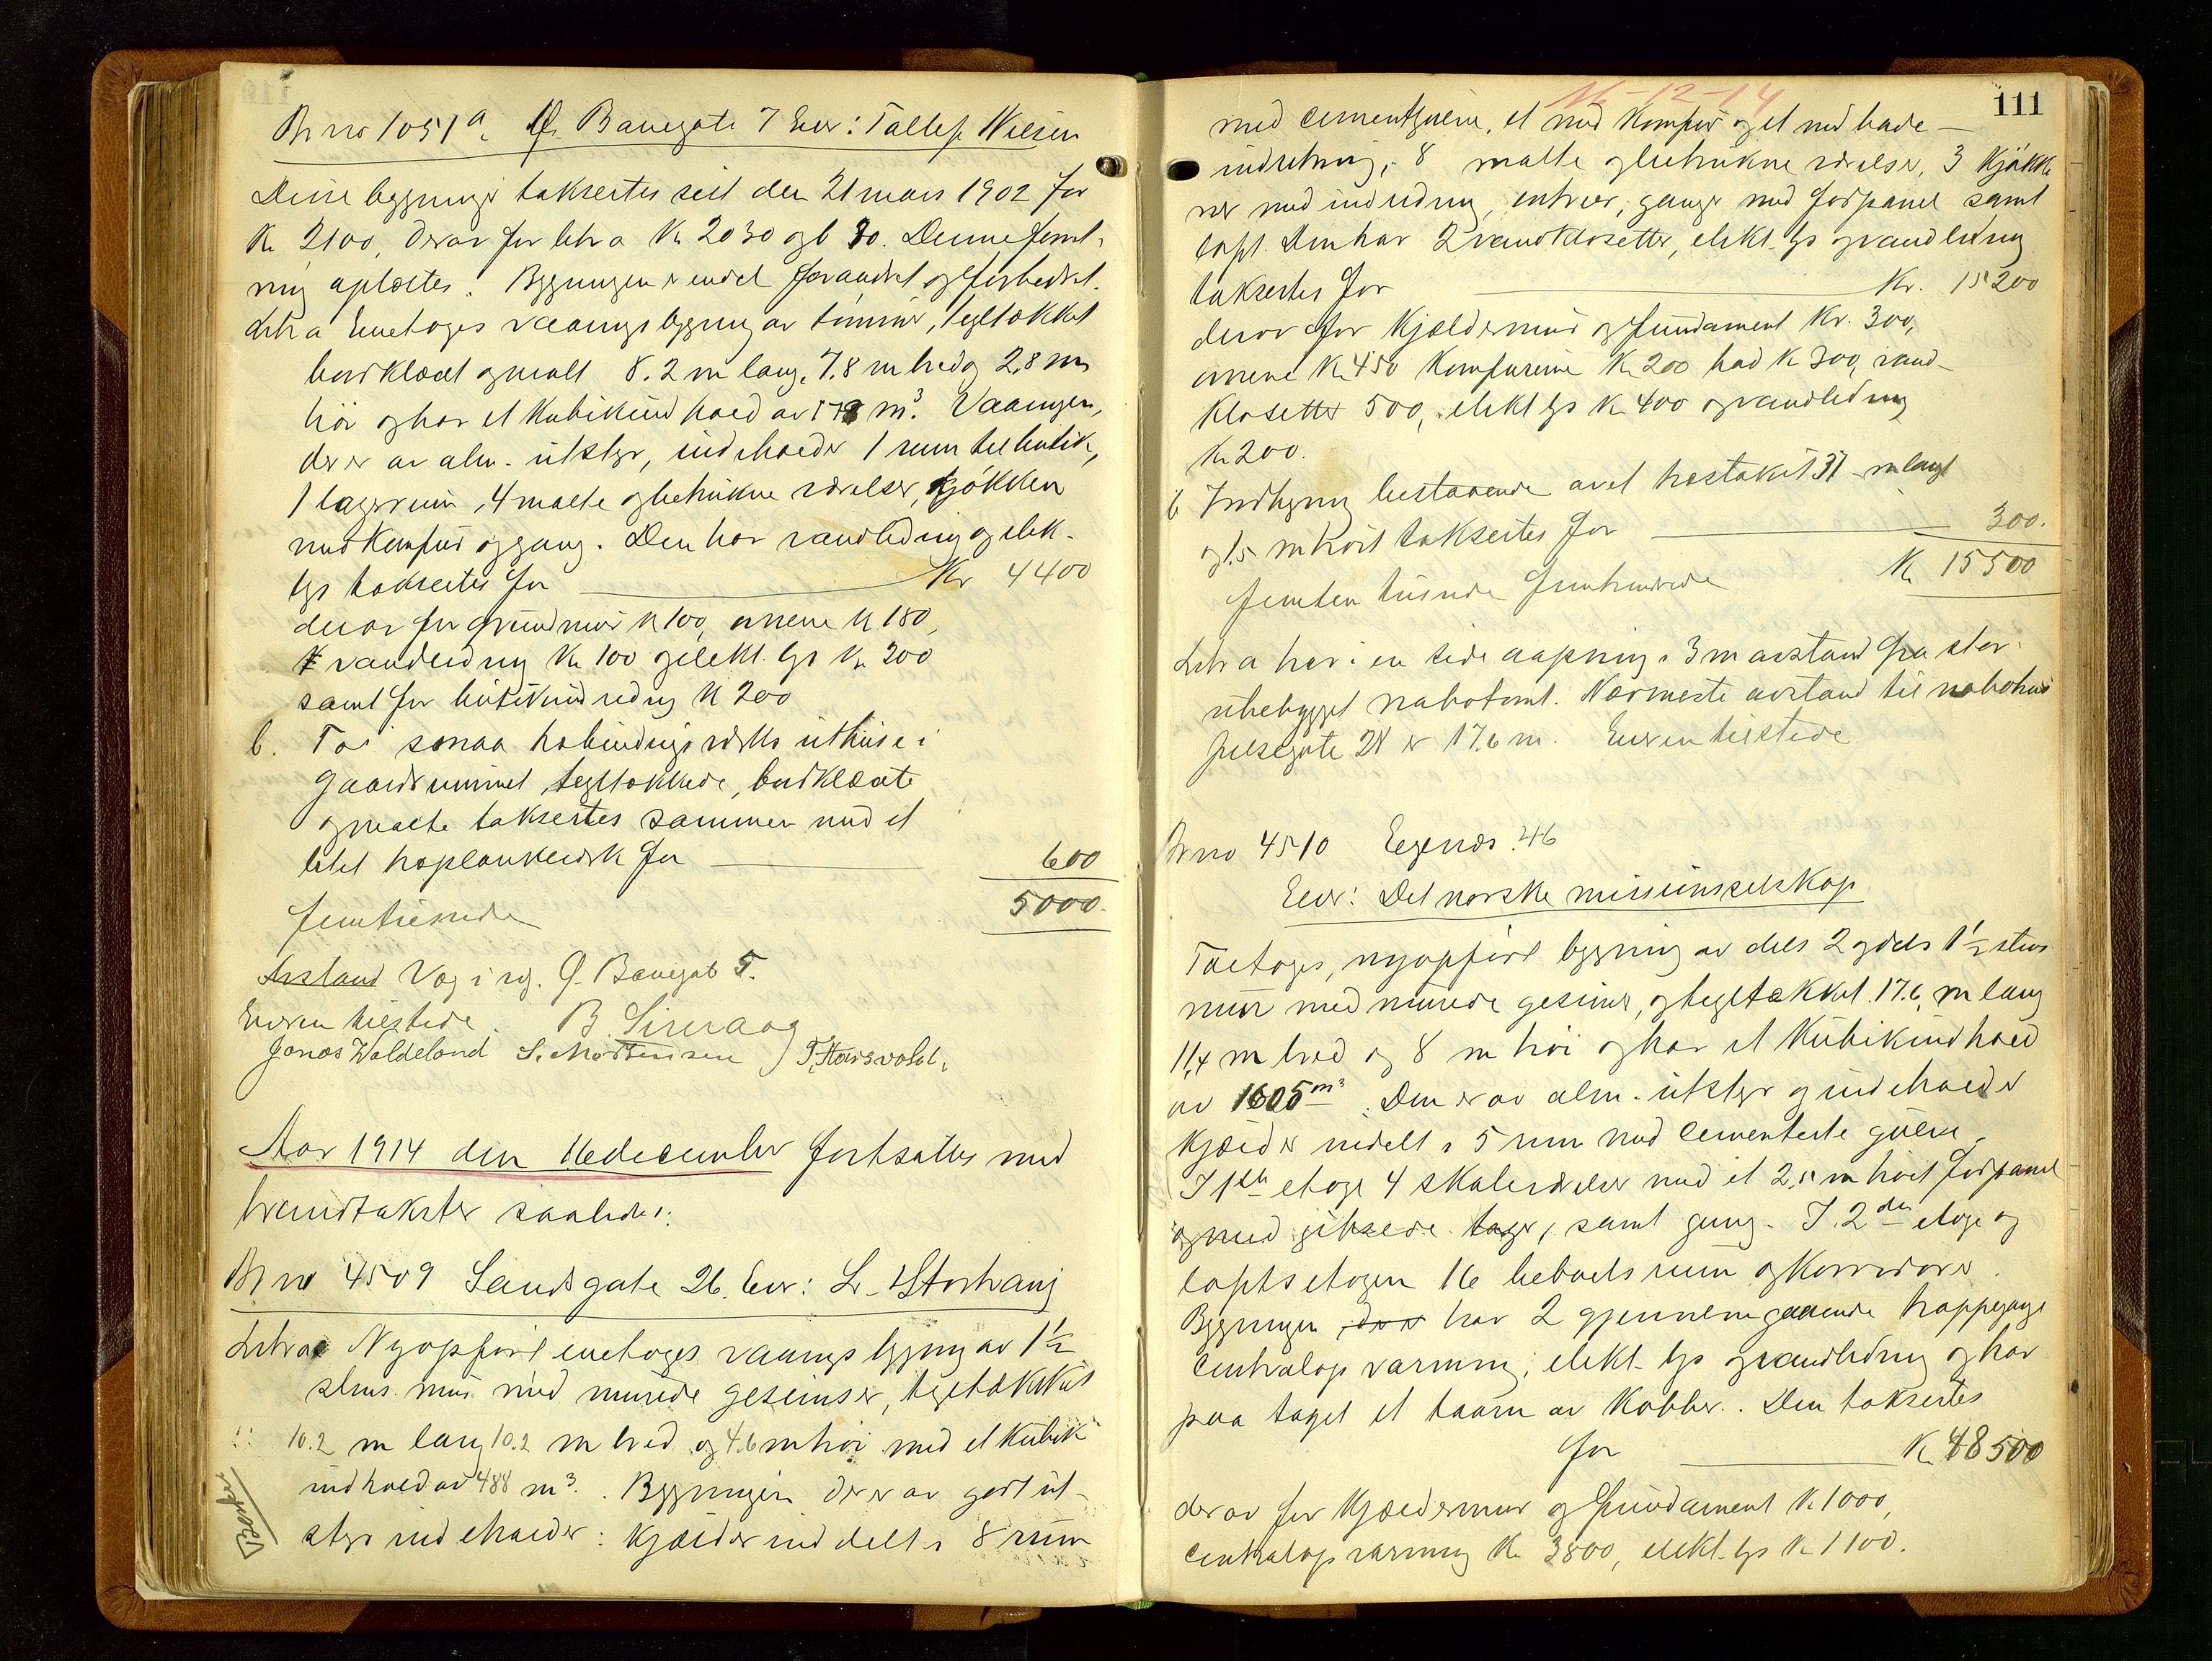 Br no 1051a Ø. Banegate 7 Eier: Tallef Nielsen
Denne bygnings taksertes sist den 21 mars 1902 for
Kr 2100, derav for litr a Kr 2030 og b 70. Denne forret-
ning oplæstes. Bygningen er endel forandret og forbedret.
Litr a Enetages vaaningsbygning av tømmer, tegltækket
bordklædt og malt 8.2 m lang, 7.8 m bred og 2,8 m
høi og har et Kubikindhold av 178 m³. Vaaningen,
der er av alm. utstyr, indeholder 1 rum til butik,
1 lagerrum, 4 malte og betrukne værelser, kjøkken
med Komfur og gang. Den har vandledning og elek-
lys taksertes for Kr 4400
derav for grundmur Kr 100, ovnene Kr 180,
vandledning Kr 100 og elekt. lys Kr 200
samt for butikindredning Kr 200
b. To smaa habindingsverks uthuse i
gaardsrummet, tegltækkede, bordklædte
og malte taksertes sammen med et
litet hoplankeværk for 600
femtusinde 5000.
Avstand Væg i væg. Ø. Banegate 5.
Eieren tilstede. B. Sirevaag
Jonas Waldeland S. Mortensen T. Hausvold.
Aar 1914 den 16 december fortsattes med
brandtakster saaledes:
Br no 4509 Sandsgate 26. Eier: L. Storhaug
Litr a Nyopført enetages vaanings bygning av 1½
stens mur med murede gesimser, tegltækket
10.2 m lang 10.2 m bred og 4.6 m høi med et Kubik
indhold av 488 m³. Bygningen der er av godt ut-
styr indeholder: Kjælder inddelt i 8 rum
16-12-14
111
med cementgulve, et med Komfur og et med bade-
indretning; 8 malte og betrukne værelser, 3 Kjøkke
ner med indredning, entreer, gange med forpanel samt
loft. Den har 2 vandklosetter, elekt. lys og vandledning
taksertes for Kr. 15200
derav for Kjældermur og fundament Kr. 300,
ovnene Kr 450 Komfurene Kr 200 bad Kr 300, vand-
Klosetter 500, elekt lys Kr 400 og vandledning
Kr 200.
b Indhegning bestaaende av et træstakit 37 m langt
og 1,5 m høit taksertes for 300.
femten tusinde femhundrede Kr 15500
Litr a har i en side aapning i 3 m avstand fra stor
ubebygget nabotomt. Nærmeste avstand til nabohus
Jelsegate 28 er 17.6 m. Eieren tilstede
Br no 4510 Eegenæs. 46
Eier: Det norske missionsselskap
Toetages, nyopført bygning av dels 2 og dels 1½ stens
mur med murede gesimser, og tegltækket. 17.6 m lang
11,4 m bred og 8 m høi og har et Kubikindhold
av 1605 m³. Den er av alm. utstyr og indeholder
Kjælder indelt i 5 rum med cementerte gulve.
I 1ste etage 4 skoleværelser med et 2,5 m høit forpanel
og med gipsede tage, samt gang. I 2den etage og
loftsetagen 16 beboelsesrum og Korridorer.
Bygningen der er har 2 gjennemgaaende trappegange
Centralopvarmning; elekt. lys og vandledning og har
paa taget et taarn av Kobber. Den taksertes
for Kr 48500
derav for Kjældermur og fundament Kr 1000,
Centralopvarmning Kr 3800, elekt. lys Kr 1100.